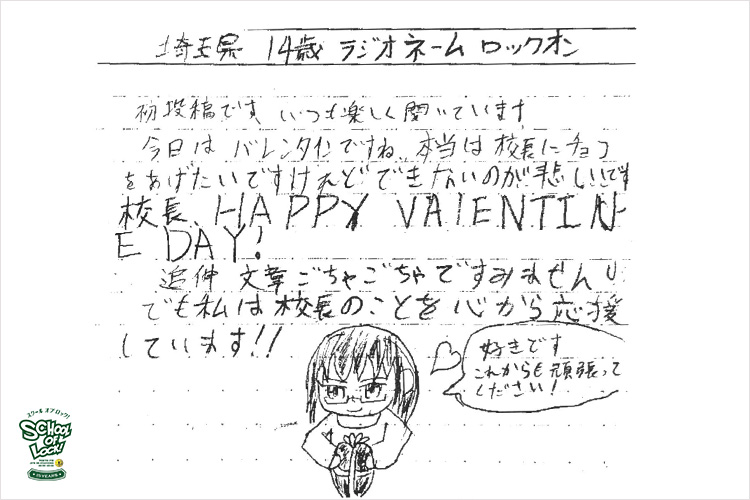 埼玉県 14歳 ラジオネーム ロックオン
初投稿です いつも楽しく聞いています
今日は バレンタインですね、本当は 校長にチョコ
をあげたいですけれどできないのが悲しいです
校長、HAPPY VALENTIN
E DAY!
追伸 文章ごちゃごちゃですみません
でも私は校長のことを心から応援
しています!!
好きです
これからも頑張って
ください!
スクール オブ ロック!
SCHOOL
OF
LOCK!